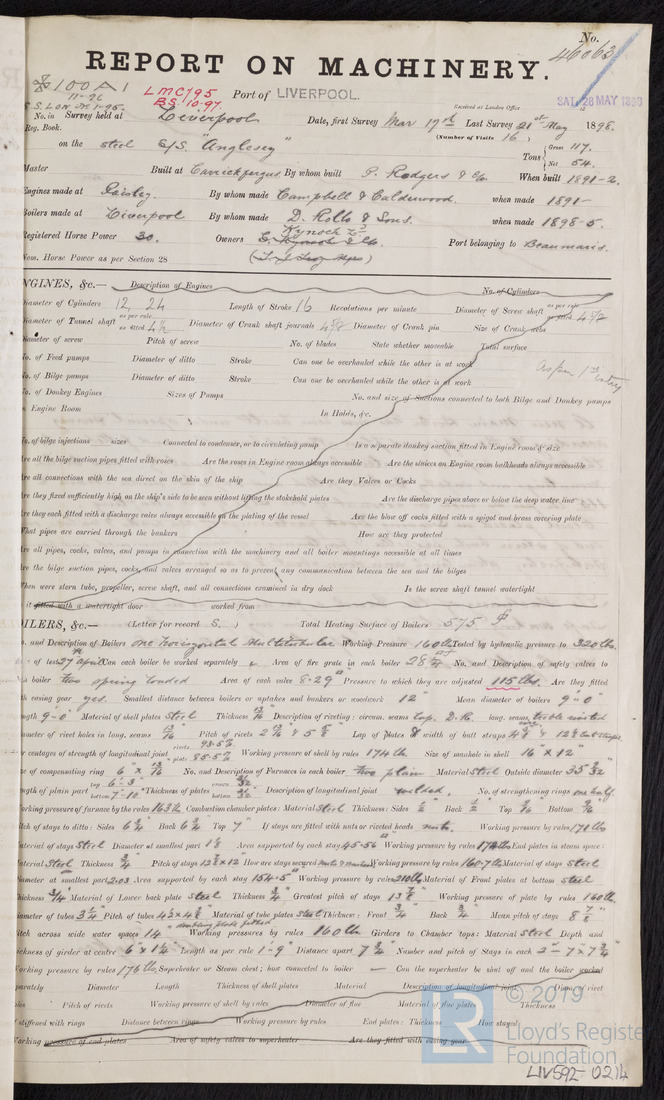 No. 46063
REPORT ON MACHINERY.
✠100A1
11-96
LMC 7.95
B.S. 10.97.
Port of LIVERPOOL.
Received at London Office
SAT. 28 MAY 1898
No. in Survey held at Liverpool Date, first Survey Mar 17th Last Survey 21st May 1898.
Reg. Book. (Number of Visits 16)
on the steel S/S "Anglesey" Tons Gross 117. Net 54.
Master Built at Carrickfergus By whom built P. Rodgers & Co. When built 1891-2.
Engines made at Paisley. By whom made Campbell & Calderwood. when made 1891-
Boilers made at Liverpool By whom made D. Rollo & Sons. when made 1898-5.
Registered Horse Power 30. Owners Kynoch Ld Port belonging to Beaumaris.
Nom. Horse Power as per Section 28
NGINES, &c.— Description of Engines No. of Cylinders
iameter of Cylinders 12 24 Length of Stroke 16 Revolutions per minute Diameter of Screw shaft as per rule as fitted 4 5/8
iameter of Tunnel shaft as per rule as fitted 4 1/2 Diameter of Crank shaft journals 4 5/8 Diameter of Crank pin Size of Crank webs
iameter of screw Pitch of screw No. of blades State whether moveable Total surface
o. of Feed pumps Diameter of ditto Stroke Can one be overhauled while the other is at work
As per 1st Entry
o. of Bilge pumps Diameter of ditto Stroke Can one be overhauled while the other is at work
o. of Donkey Engines Sizes of Pumps No. and size of Suctions connected to both Bilge and Donkey pumps
n Engine Room In Holds, &c.
o. of bilge injections sizes Connected to condenser, or to circulating pump Is a separate donkey suction fitted in Engine room & size
re all the bilge suction pipes fitted with roses Are the roses in Engine room always accessible Are the sluices on Engine room bulkheads always accessible
re all connections with the sea direct on the skin of the ship Are they Valves or Cocks
re they fixed sufficiently high on the ship's side to be seen without lifting the stokehold plates Are the discharge pipes above or below the deep water line
re they each fitted with a discharge valve always accessible on the plating of the vessel Are the blow off cocks fitted with a spigot and brass covering plate
hat pipes are carried through the bunkers How are they protected
re all pipes, cocks, valves, and pumps in connection with the machinery and all boiler mountings accessible at all times
re the bilge suction pipes, cocks, and valves arranged so as to prevent any communication between the sea and the bilges
hen were stern tube, propeller, screw shaft, and all connections examined in dry dock Is the screw shaft tunnel watertight
it fitted with a watertight door worked from
OILERS, &c.— (Letter for record S.) Total Heating Surface of Boilers 575
o. and Description of Boilers one horizontal Multitubular Working Pressure 160 lbs Tested by hydraulic pressure to 320 lbs.
of test 27th April Can each boiler be worked separately Area of fire grate in each boiler 28 No. and Description of safety valves to
boiler two spring loaded Area of each valve 8.29" Pressure to which they are adjusted 115 lbs. Are they fitted
th easing gear yes. Smallest distance between boilers or uptakes and bunkers or woodwork 12" Mean diameter of boilers 9'-0"
ngth 9'-0" Material of shell plates Steel Thickness 13/16" Description of riveting: circum. seams Lap. D.R. long. seams treble riveted
meter of rivet holes in long. seams 13/16 Pitch of rivets Lap of plates or width of butt straps
er centages of strength of longitudinal joint rivets 93.5% plate 85.5% Working pressure of shell by rules 174 lb Size of manhole in shell 16" x 12"
ze of compensating ring 6" x 13/16" No. and Description of Furnaces in each boiler two plain Material Steel Outside diameter 35 3/32"
ngth of plain part top 6'-3" bottom 7'-10" Thickness of plates Description of longitudinal joint welded. No. of strengthening rings one half
orking pressure of furnace by the rules 163 lb Combustion chamber plates: Material Steel Thickness: Sides 1/2" Back 1/2" Top 9/16" Bottom 9/16"
itch of stays to ditto: Sides 6 3/4" Back 6 3/4" Top 7" If stays are fitted with nuts or riveted heads nuts. Working pressure by rules 171 lb
aterial of stays Steel Diameter at smallest part 1.8 Area supported by each stay 45.56 Working pressure by rules 174 lb End plates in steam space:
aterial Steel Thickness 3/4" Pitch of stays How are stays secured Working pressure by rules 160.7 lb Material of stays steel
ameter at smallest part 2.03 Area supported by each stay 154.5" Working pressure by rules 210 lb Material of Front plates at bottom steel
hickness 3/4" Material of Lower back plate steel Thickness 3/4" Greatest pitch of stays 13 7/8" Working pressure of plate by rules 160 lb.
iameter of tubes 3 1/4" Pitch of tubes 4 1/2 x 4 Material of tube plates Steel Thickness: Front 3/4" Back 3/4" Mean pitch of stays 8
itch across wide water spaces 14" doubling plate fitted Working pressures by rules 160 lb Girders to Chamber tops: Material Steel Depth and
ickness of girder at centre 6" x 1 1/4" Length as per rule 1'-9" Distance apart 7 3/4" Number and pitch of Stays in each 2 - 7" x 7 3/4"
Working pressure by rules 176 lb Superheater or Steam chest; how connected to boiler — Can the superheater be shut off and the boiler worked
parately Diameter Length Thickness of shell plates Material Description of longitudinal joint Diam. of rivet
oles Pitch of rivets Working pressure of shell by rules Diameter of flue Material of flue plates Thickness
f stiffened with rings Distance between rings Working pressure by rules End plates: Thickness How stayed
Working pressure of end plates Area of safety valves to superheater Are they fitted with easing gear
© 2019
LR
Lloyd's Register
Foundation
LIV592-0214